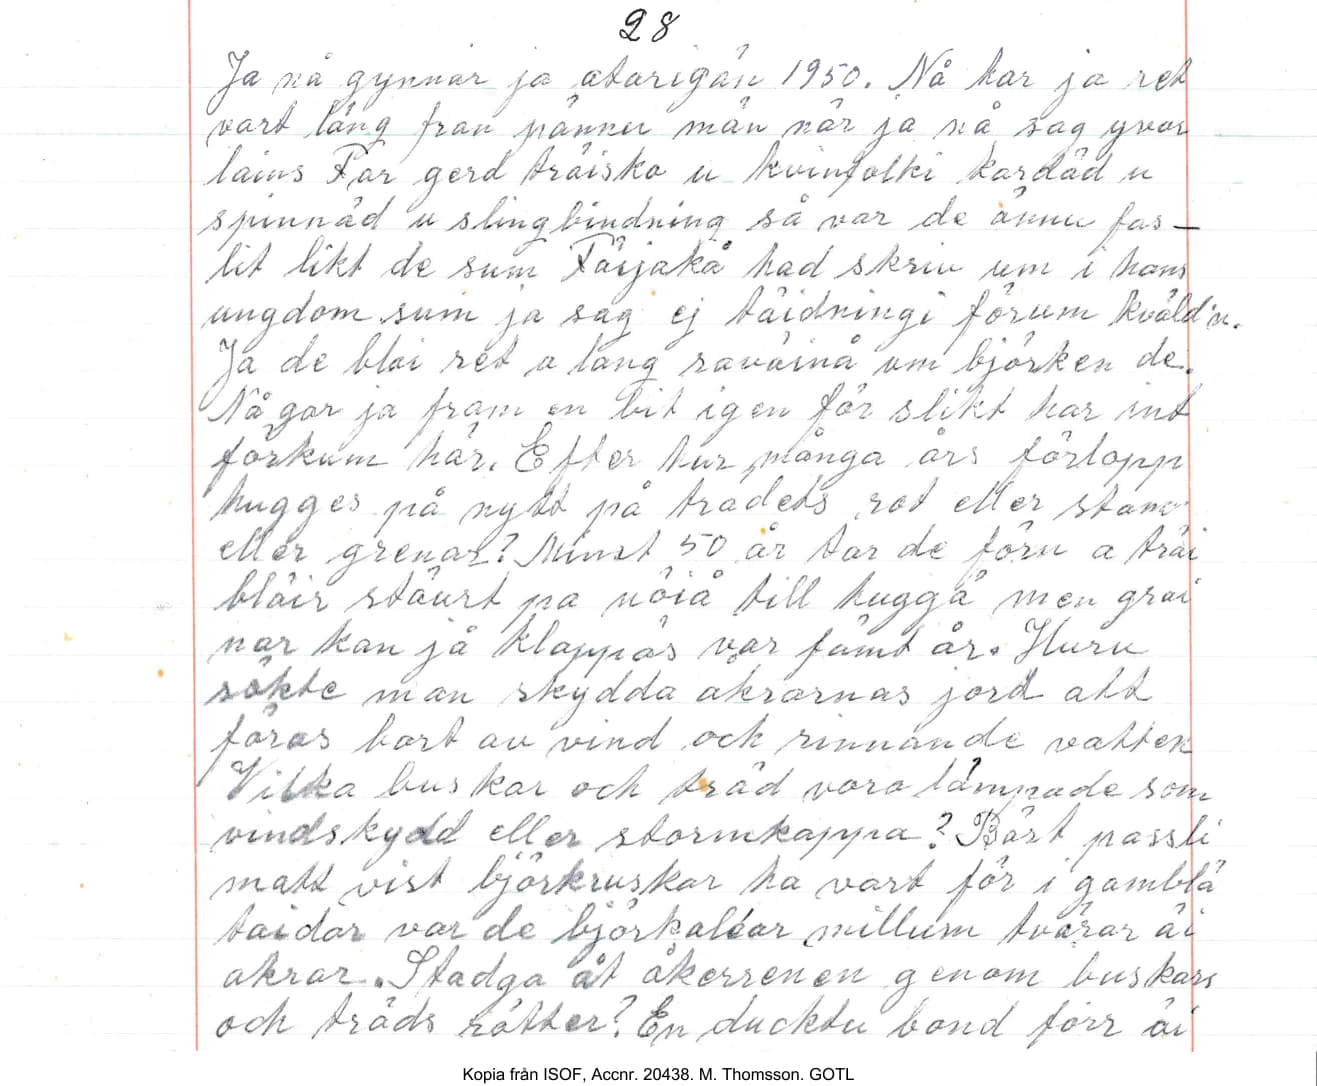 28
Ja nå gynnar ja atarigän 1950. Nå har ja ret
vart läng fran pännu män när ja nå sag yvar
lains Far gerd träisko u kvinfolki kardäd u
spinnäd u slingbindning så var de ännu fas-
lit likt de sum Fäijakå had skriv um i hans
ungdom sum ja sag ej täidningi förum kväld'n.
Ja de blai ret a lang raväinå um björken de.
Nå gar ja fram en bit igen för slikt har int
förkum här. Efter hur många års förlopp
hugges på nytt på trädets rot eller stam
eller grenar? Minst 50 år tar de föru a träi
bläir stäurt pa nöiå till huggä men grai
nar kan jå klappäs var fämt år. Huru
sökte man skydda åkrarnas jord att
föras bort av vind och rinnande vatten
Vilka buskar och träd voro lämpade som
vindskydd eller stormkappa? Bäst passli
matt vist björkruskar ha vart för i gamblä
taidar var de björkaléar millum tvärar äi
akrar. Stadga åt åkerrenen genom buskars
och träds rötter? En ducktu bond förr äi
Kopia från ISOF, Accnr. 20438. M. Thomsson. GOTL